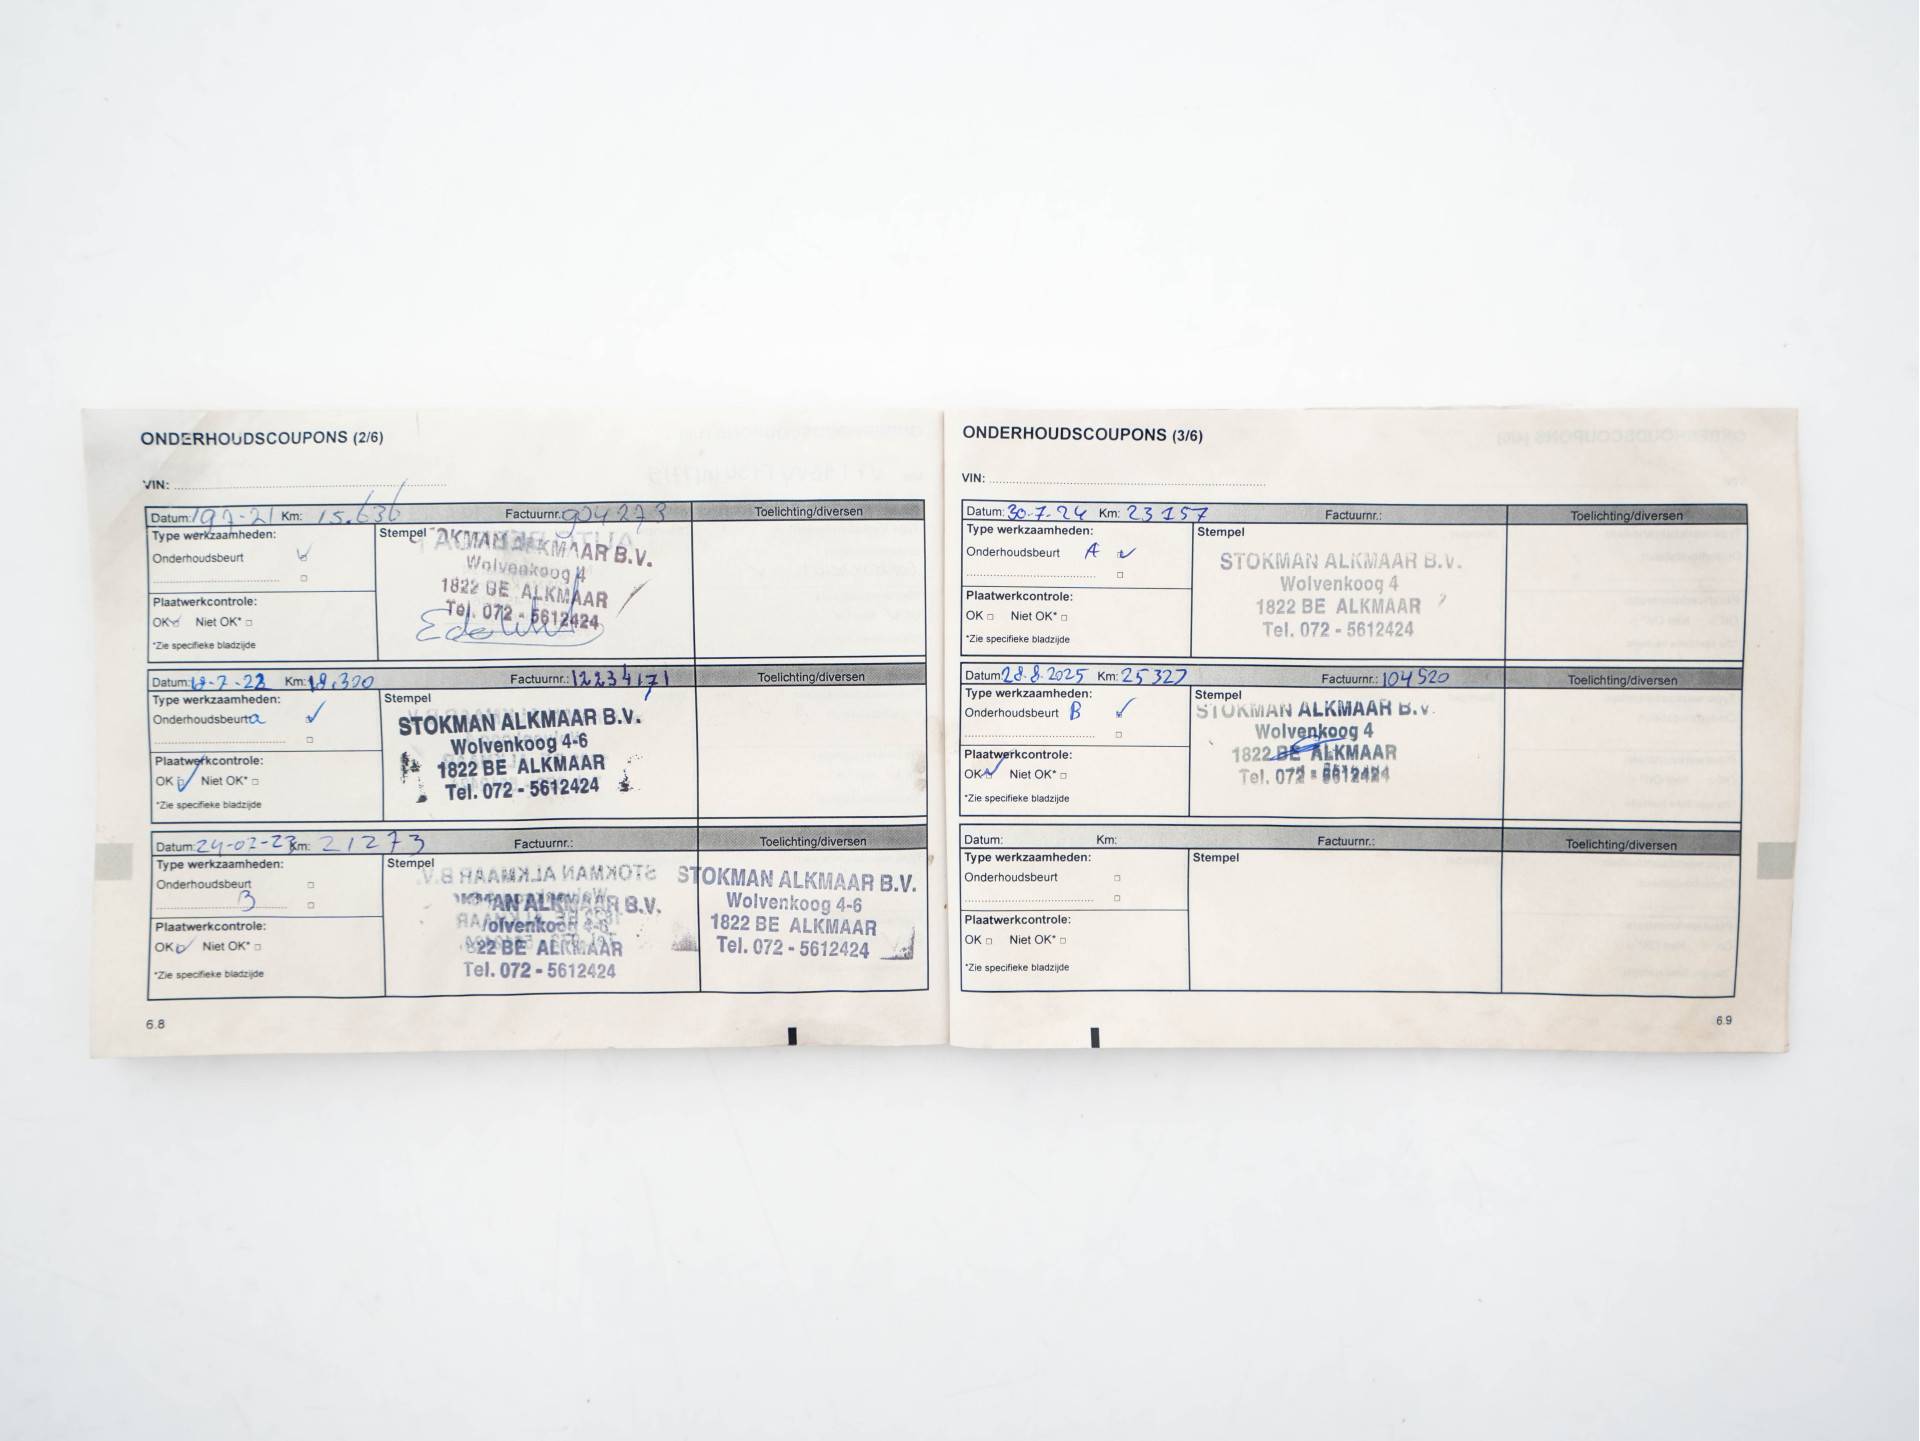 ONDERHOUDSCOUPONS (2/6)
VIN:
Datum: 19 7-21 Km: 15.636 Factuurnr.: 904273 Toelichting/diversen
Type werkzaamheden:
Stempel
Onderhoudsbeurt
ALKMAAR B.V.
Wolvenkoog 4
1822 BE ALKMAAR
Tel. 072 - 5612424
Plaatwerkcontrole:
OK Niet OK*
*Zie specifieke bladzijde
Datum: 18-7-22 Km: 18.320 Factuurnr.: 12234171 Toelichting/diversen
Type werkzaamheden:
Stempel
Onderhoudsbeurt a
STOKMAN ALKMAAR B.V.
Wolvenkoog 4-6
1822 BE ALKMAAR
Tel. 072 - 5612424
Plaatwerkcontrole:
OK Niet OK*
*Zie specifieke bladzijde
Datum: 24-07-23 Km: 21273 Factuurnr.: Toelichting/diversen
Type werkzaamheden:
Stempel
Onderhoudsbeurt
B
MAN ALKMAAR B.V.
olvenkoog 4-6
22 BE ALKMAAR
Tel. 072 - 5612424
STOKMAN ALKMAAR B.V.
Wolvenkoog 4-6
1822 BE ALKMAAR
Tel. 072 - 5612424
Plaatwerkcontrole:
OK Niet OK*
*Zie specifieke bladzijde
6.8
ONDERHOUDSCOUPONS (3/6)
VIN:
Datum: 30-7-24 Km: 23157 Factuurnr.: Toelichting/diversen
Type werkzaamheden:
Stempel
Onderhoudsbeurt A
STOKMAN ALKMAAR B.V.
Wolvenkoog 4
1822 BE ALKMAAR
Tel. 072 - 5612424
Plaatwerkcontrole:
OK Niet OK*
*Zie specifieke bladzijde
Datum: 28-8-2025 Km: 25327 Factuurnr.: 104520 Toelichting/diversen
Type werkzaamheden:
Stempel
Onderhoudsbeurt B
STOKMAN ALKMAAR B.V.
Wolvenkoog 4
1822 BE ALKMAAR
Tel. 072 - 5612424
Plaatwerkcontrole:
OK Niet OK*
*Zie specifieke bladzijde
Datum: Km: Factuurnr.: Toelichting/diversen
Type werkzaamheden:
Stempel
Onderhoudsbeurt
Plaatwerkcontrole:
OK Niet OK*
*Zie specifieke bladzijde
6.9